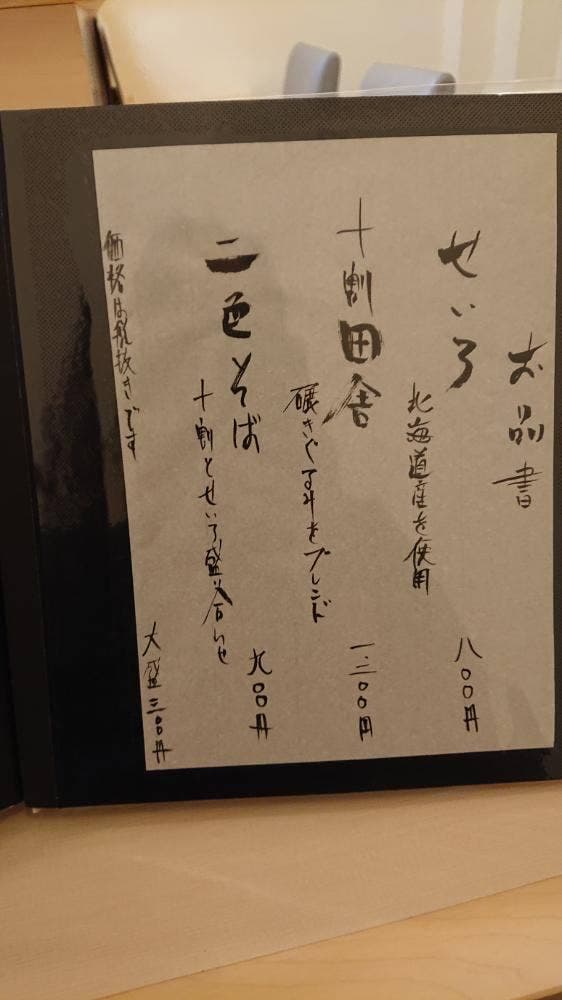 お品書
せいろ
北海道産を使用
八〇〇円
十割田舎
碾きぐるみをブレンド
一、三〇〇円
二色そば
十割とせいろ盛り合わせ
九〇〇円
価格は税抜きです
大盛三〇〇円